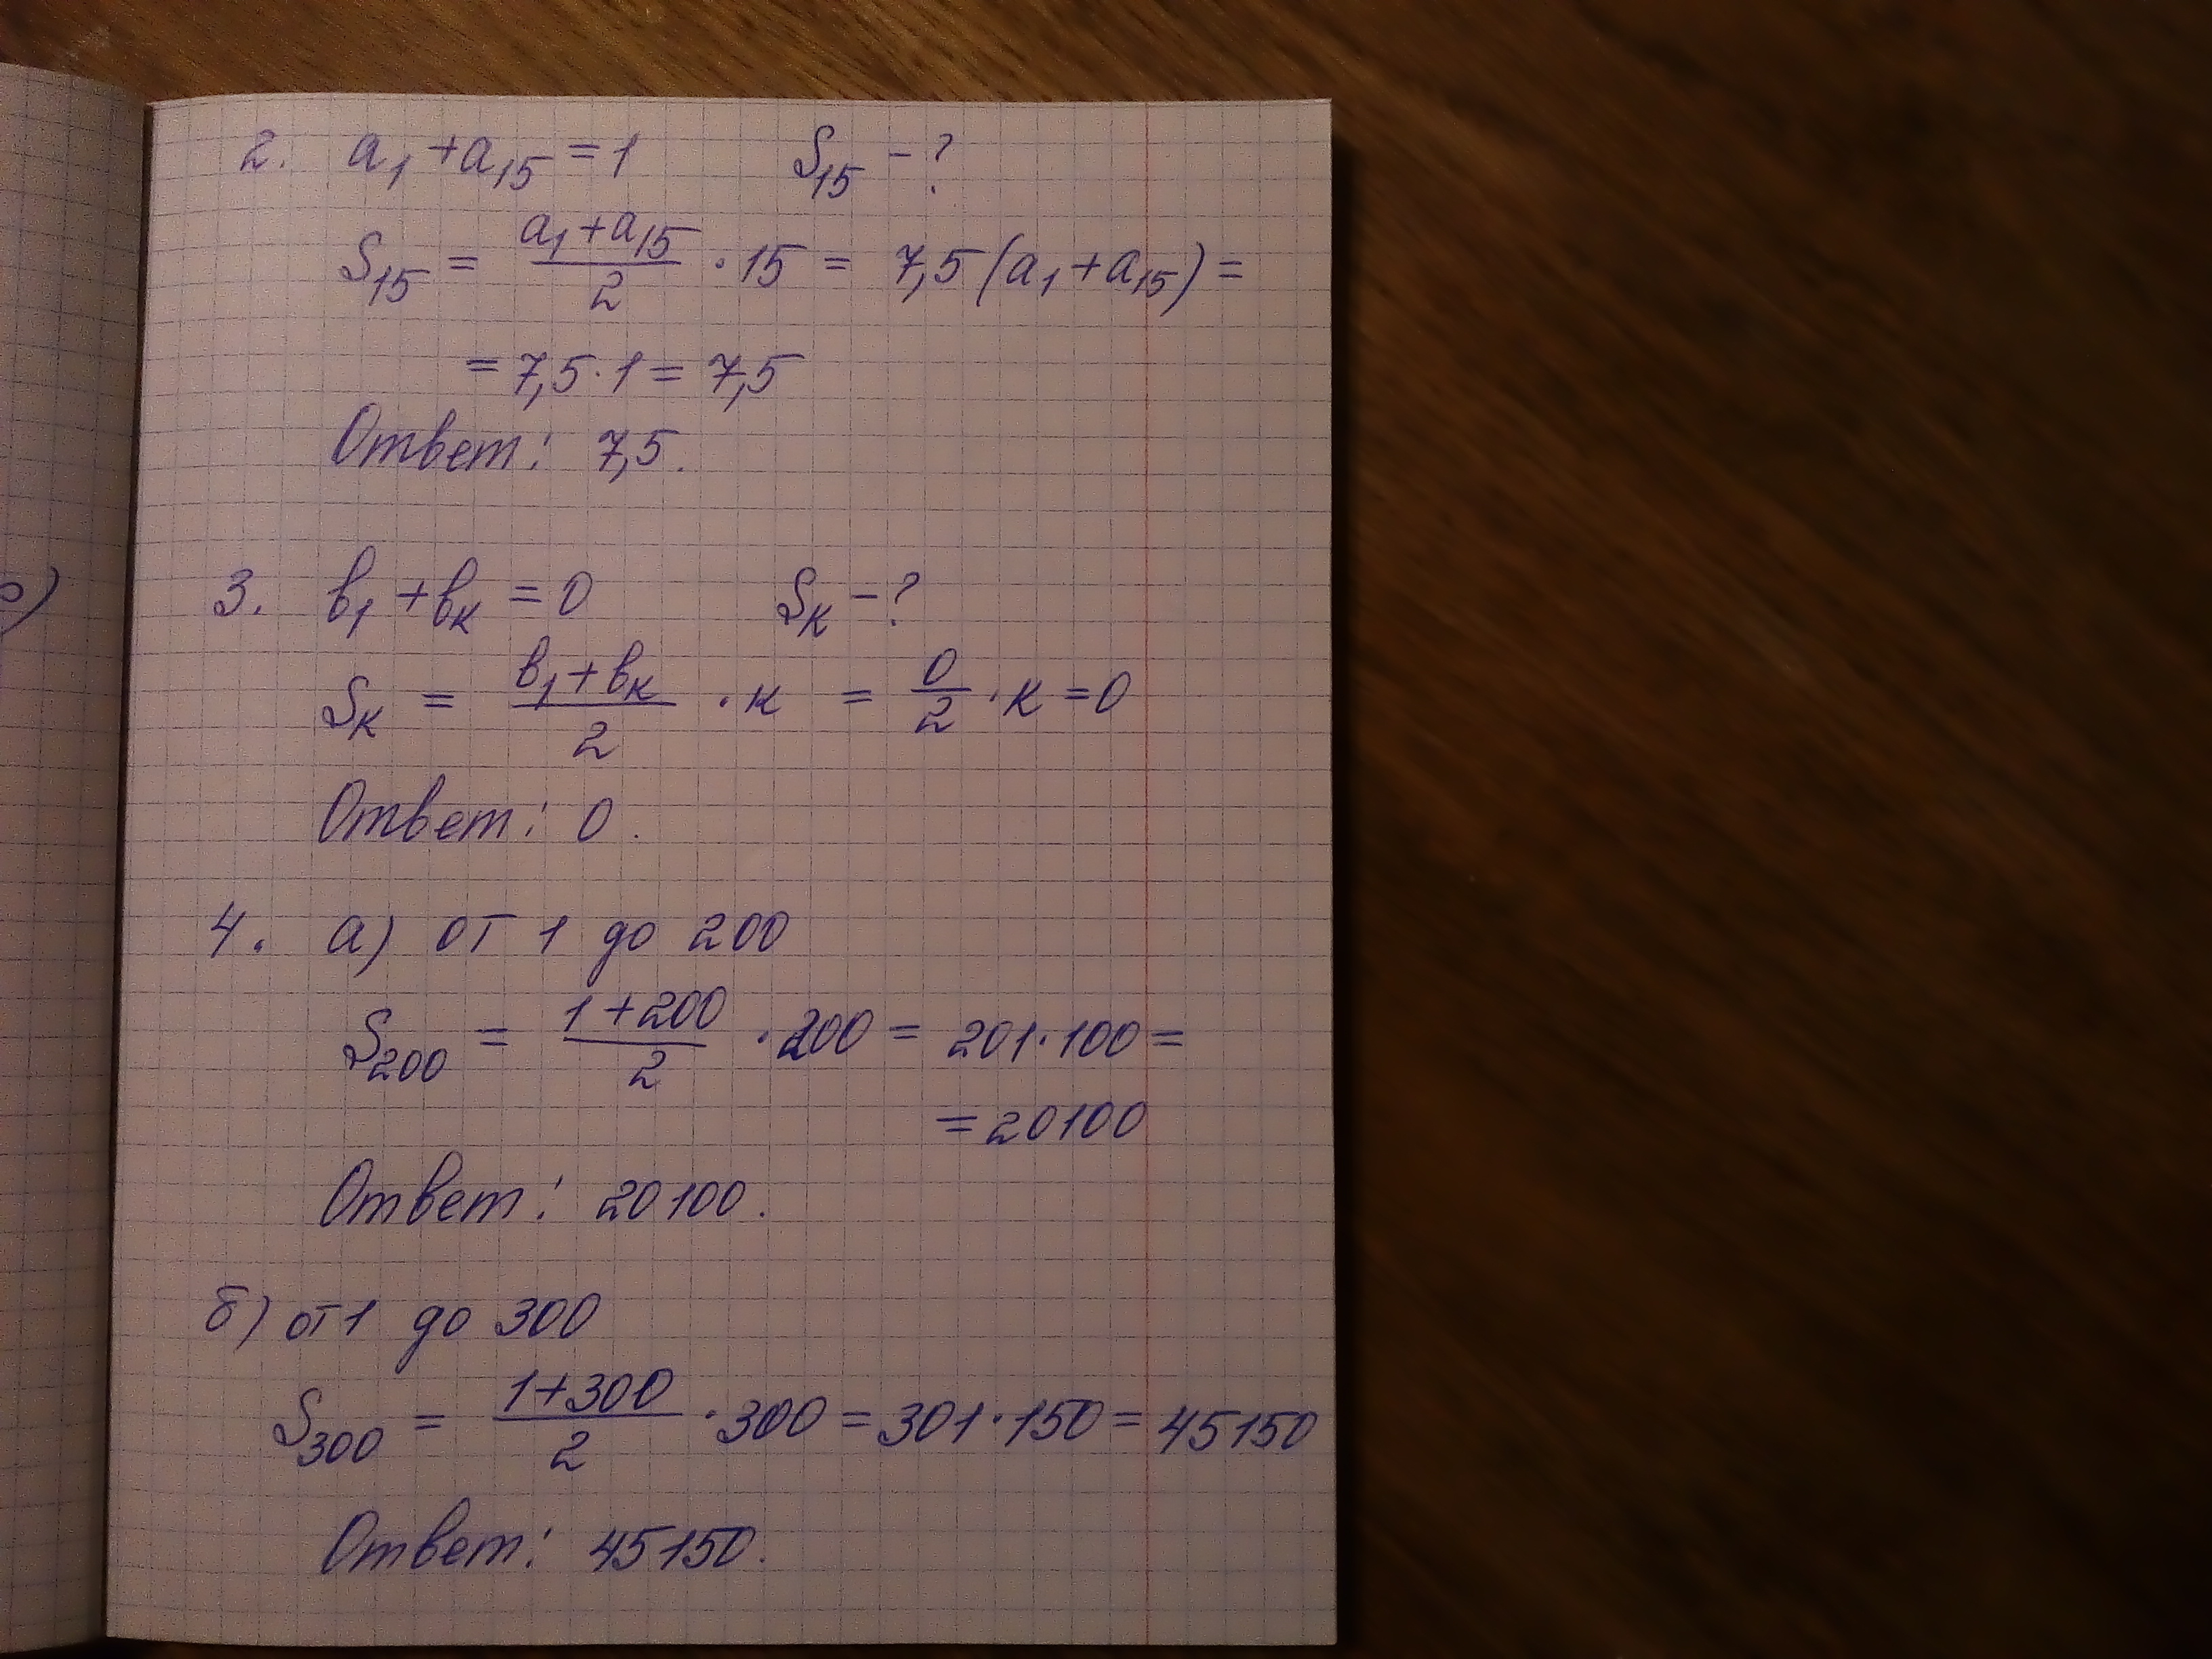 2. a₁ + a₁₅ = 1 S₁₅ - ?
S₁₅ = (a₁ + a₁₅)/2 · 15 = 7,5 (a₁ + a₁₅) =
= 7,5 · 1 = 7,5
Ответ: 7,5.
3. в₁ + вₖ = 0 Sₖ - ?
Sₖ = (в₁ + вₖ)/2 · к = 0/2 · к = 0
Ответ: 0.
4. а) от 1 до 200
S₂₀₀ = (1 + 200)/2 · 200 = 201 · 100 =
= 20100
Ответ: 20100.
б) от 1 до 300
S₃₀₀ = (1 + 300)/2 · 300 = 301 · 150 = 45150
Ответ: 45150.